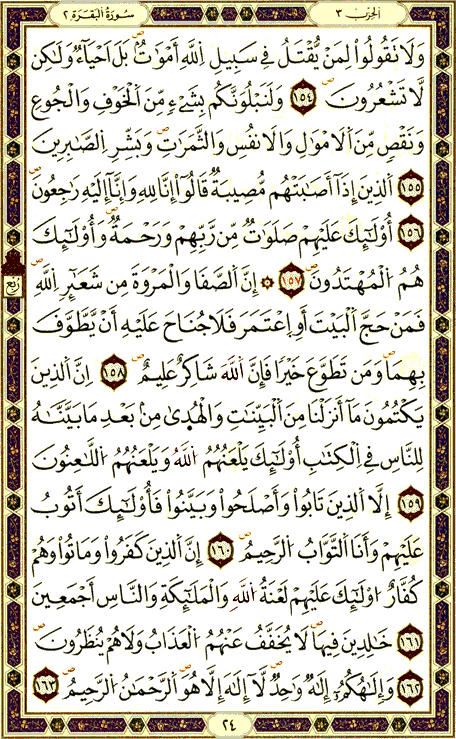 سُورَةُ الْبَقَرَة ٢
الْحِزْب ٣
وَلَا تَقُولُواْ لِمَنْ يُّقْتَلُ فِے سَبِيلِ اِللَّهِ أَمْوَٰتُۢ بَلَ اَحْيَآءٌ وَلَٰكِن
لَّا تَشْعُرُونَ ١٥٤ وَلَنَبْلُوَنَّكُم بِشَےْءٍ مِّنَ اَلْخَوْفِ وَالْجُوعِ
وَنَقْصٍ مِّنَ اَلَامْوَٰلِ وَالَانفُسِ وَالثَّمَرَٰتِ وَبَشِّرِ اِلصَّٰبِرِينَ
١٥٥ اَلذِينَ إِذَآ أَصَٰبَتْهُم مُّصِيبَةٌ قَالُوٓاْ إِنَّا لِلهِ وَإِنَّآ إِلَيْهِ رَٰجِعُونَ
١٥٦ أُوْلَٰٓئِكَ عَلَيْهِمْ صَلَوَٰتٌ مِّن رَّبِّهِمْ وَرَحْمَةٌ وَأُوْلَٰٓئِكَ
هُمُ اُلْمُهْتَدُونَ ١٥٧ ۞ إِنَّ اَلصَّفَا وَالْمَرْوَةَ مِن شَعَٰٓئِرِ اِللَّهِ
رُبْع
فَمَنْ حَجَّ اَلْبَيْتَ أَوِ اِعْتَمَرَ فَلَا جُنَاحَ عَلَيْهِ أَنْ يَّطَّوَّفَ
بِهِمَا وَمَن تَطَوَّعَ خَيْرًا فَإِنَّ اَللَّهَ شَاكِرٌ عَلِيمٌ ١٥٨ اِنَّ اَلذِينَ
يَكْتُمُونَ مَآ أَنزَلْنَا مِنَ اَلْبَيِّنَٰتِ وَالْهُدَىٰ مِنۢ بَعْدِ مَا بَيَّنَّٰهُ
لِلنَّاسِ فِے اِلْكِتَٰبِ أُوْلَٰٓئِكَ يَلْعَنُهُمُ اُللَّهُ وَيَلْعَنُهُمُ اُللَّٰعِنُونَ
١٥٩ إِلَّا اَلذِينَ تَابُواْ وَأَصْلَحُواْ وَبَيَّنُواْ فَأُوْلَٰٓئِكَ أَتُوبُ
عَلَيْهِمْ وَأَنَا اَلتَّوَّابُ اُلرَّحِيمُ ١٦٠ إِنَّ اَلذِينَ كَفَرُواْ وَمَاتُواْ وَهُمْ
كُفَّارٌ اُوْلَٰٓئِكَ عَلَيْهِمْ لَعْنَةُ اُللَّهِ وَالْمَلَٰٓئِكَةِ وَالنَّاسِ أَجْمَعِينَ
١٦١ خَٰلِدِينَ فِيهَا لَا يُخَفَّفُ عَنْهُمُ اُلْعَذَابُ وَلَا هُمْ يُنظَرُونَ
١٦٢ وَإِلَٰهُكُمُۥٓ إِلَٰهٌ وَٰحِدٌ لَّآ إِلَٰهَ إِلَّا هُوَ اَلرَّحْمَٰنُ اُلرَّحِيمُ ١٦٣
٢٤